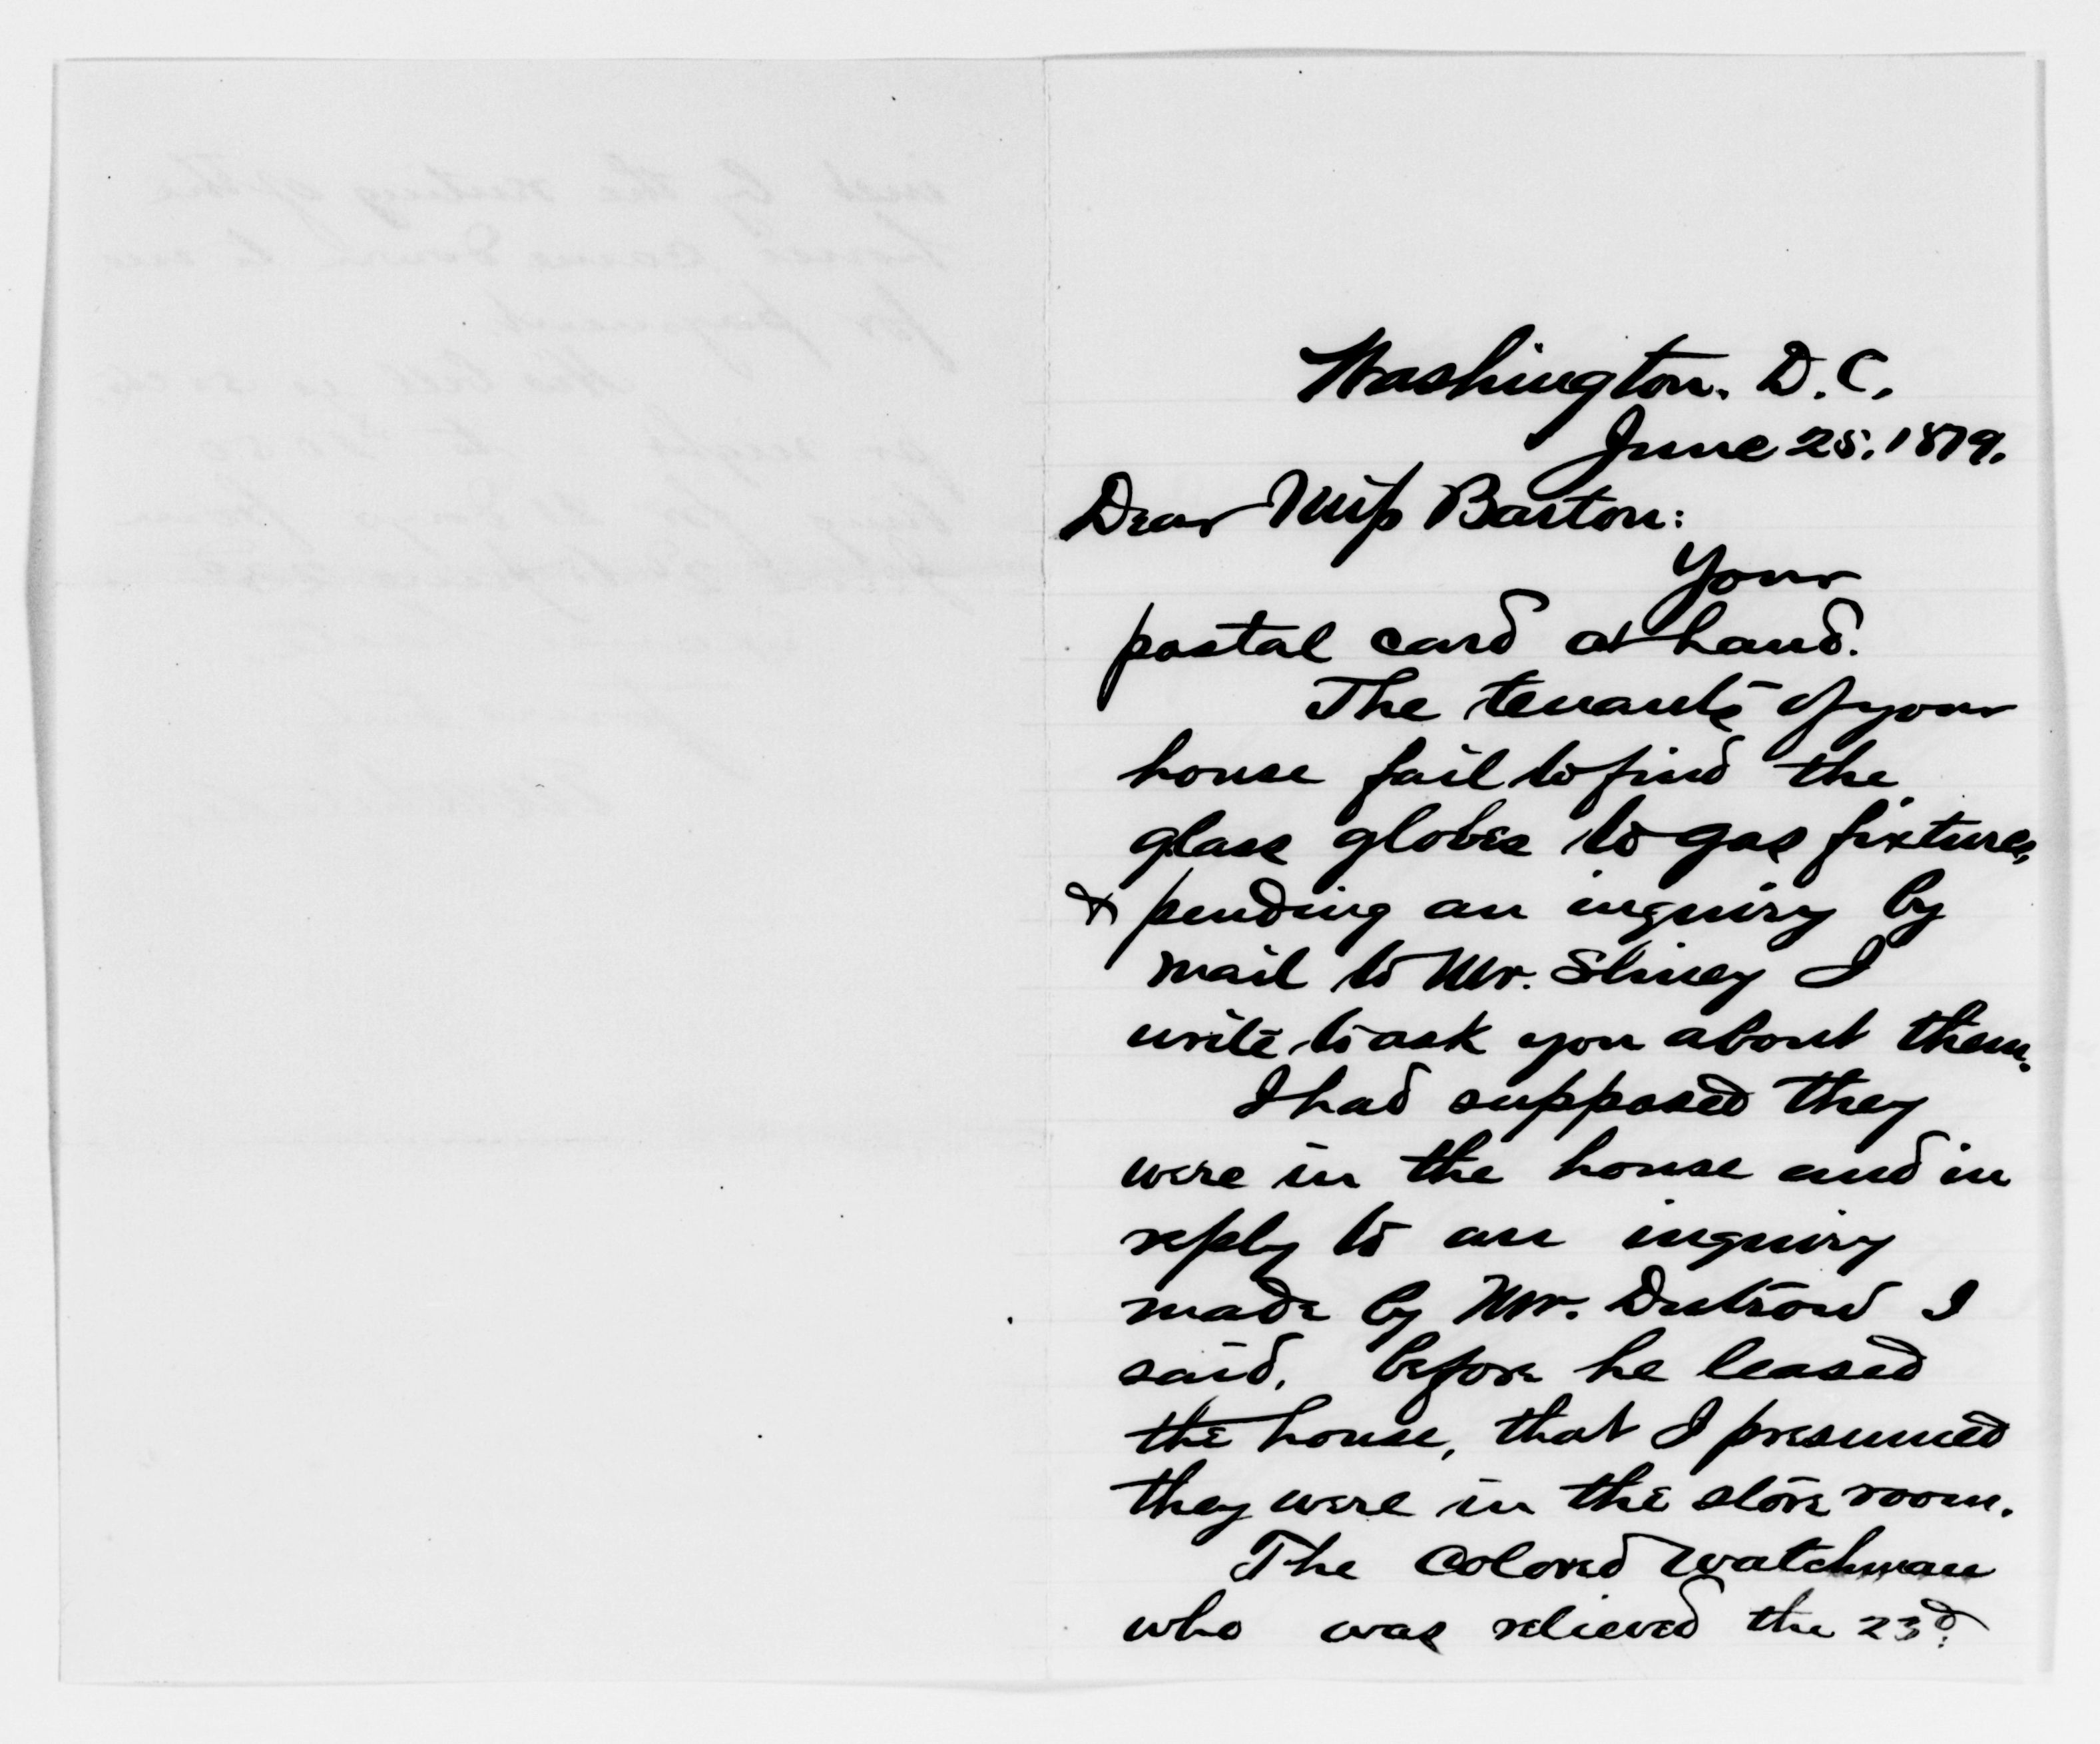 Washington. D.C.
June 25. 1879.
Dear Miss Barton:
Your
postal card at hand.
The tenants of your
house fail to find the
glass globes to gas fixtures,
& pending an inquiry by
mail to Mr. Stiney I
write to ask you about them.
I had supposed they
were in the house and in
reply to an inquiry
made by Mr. Dutrow I
said, before he leased
the house, that I presumed
they were in the store room.
The Colored Watchman
who was relieved the 23d.